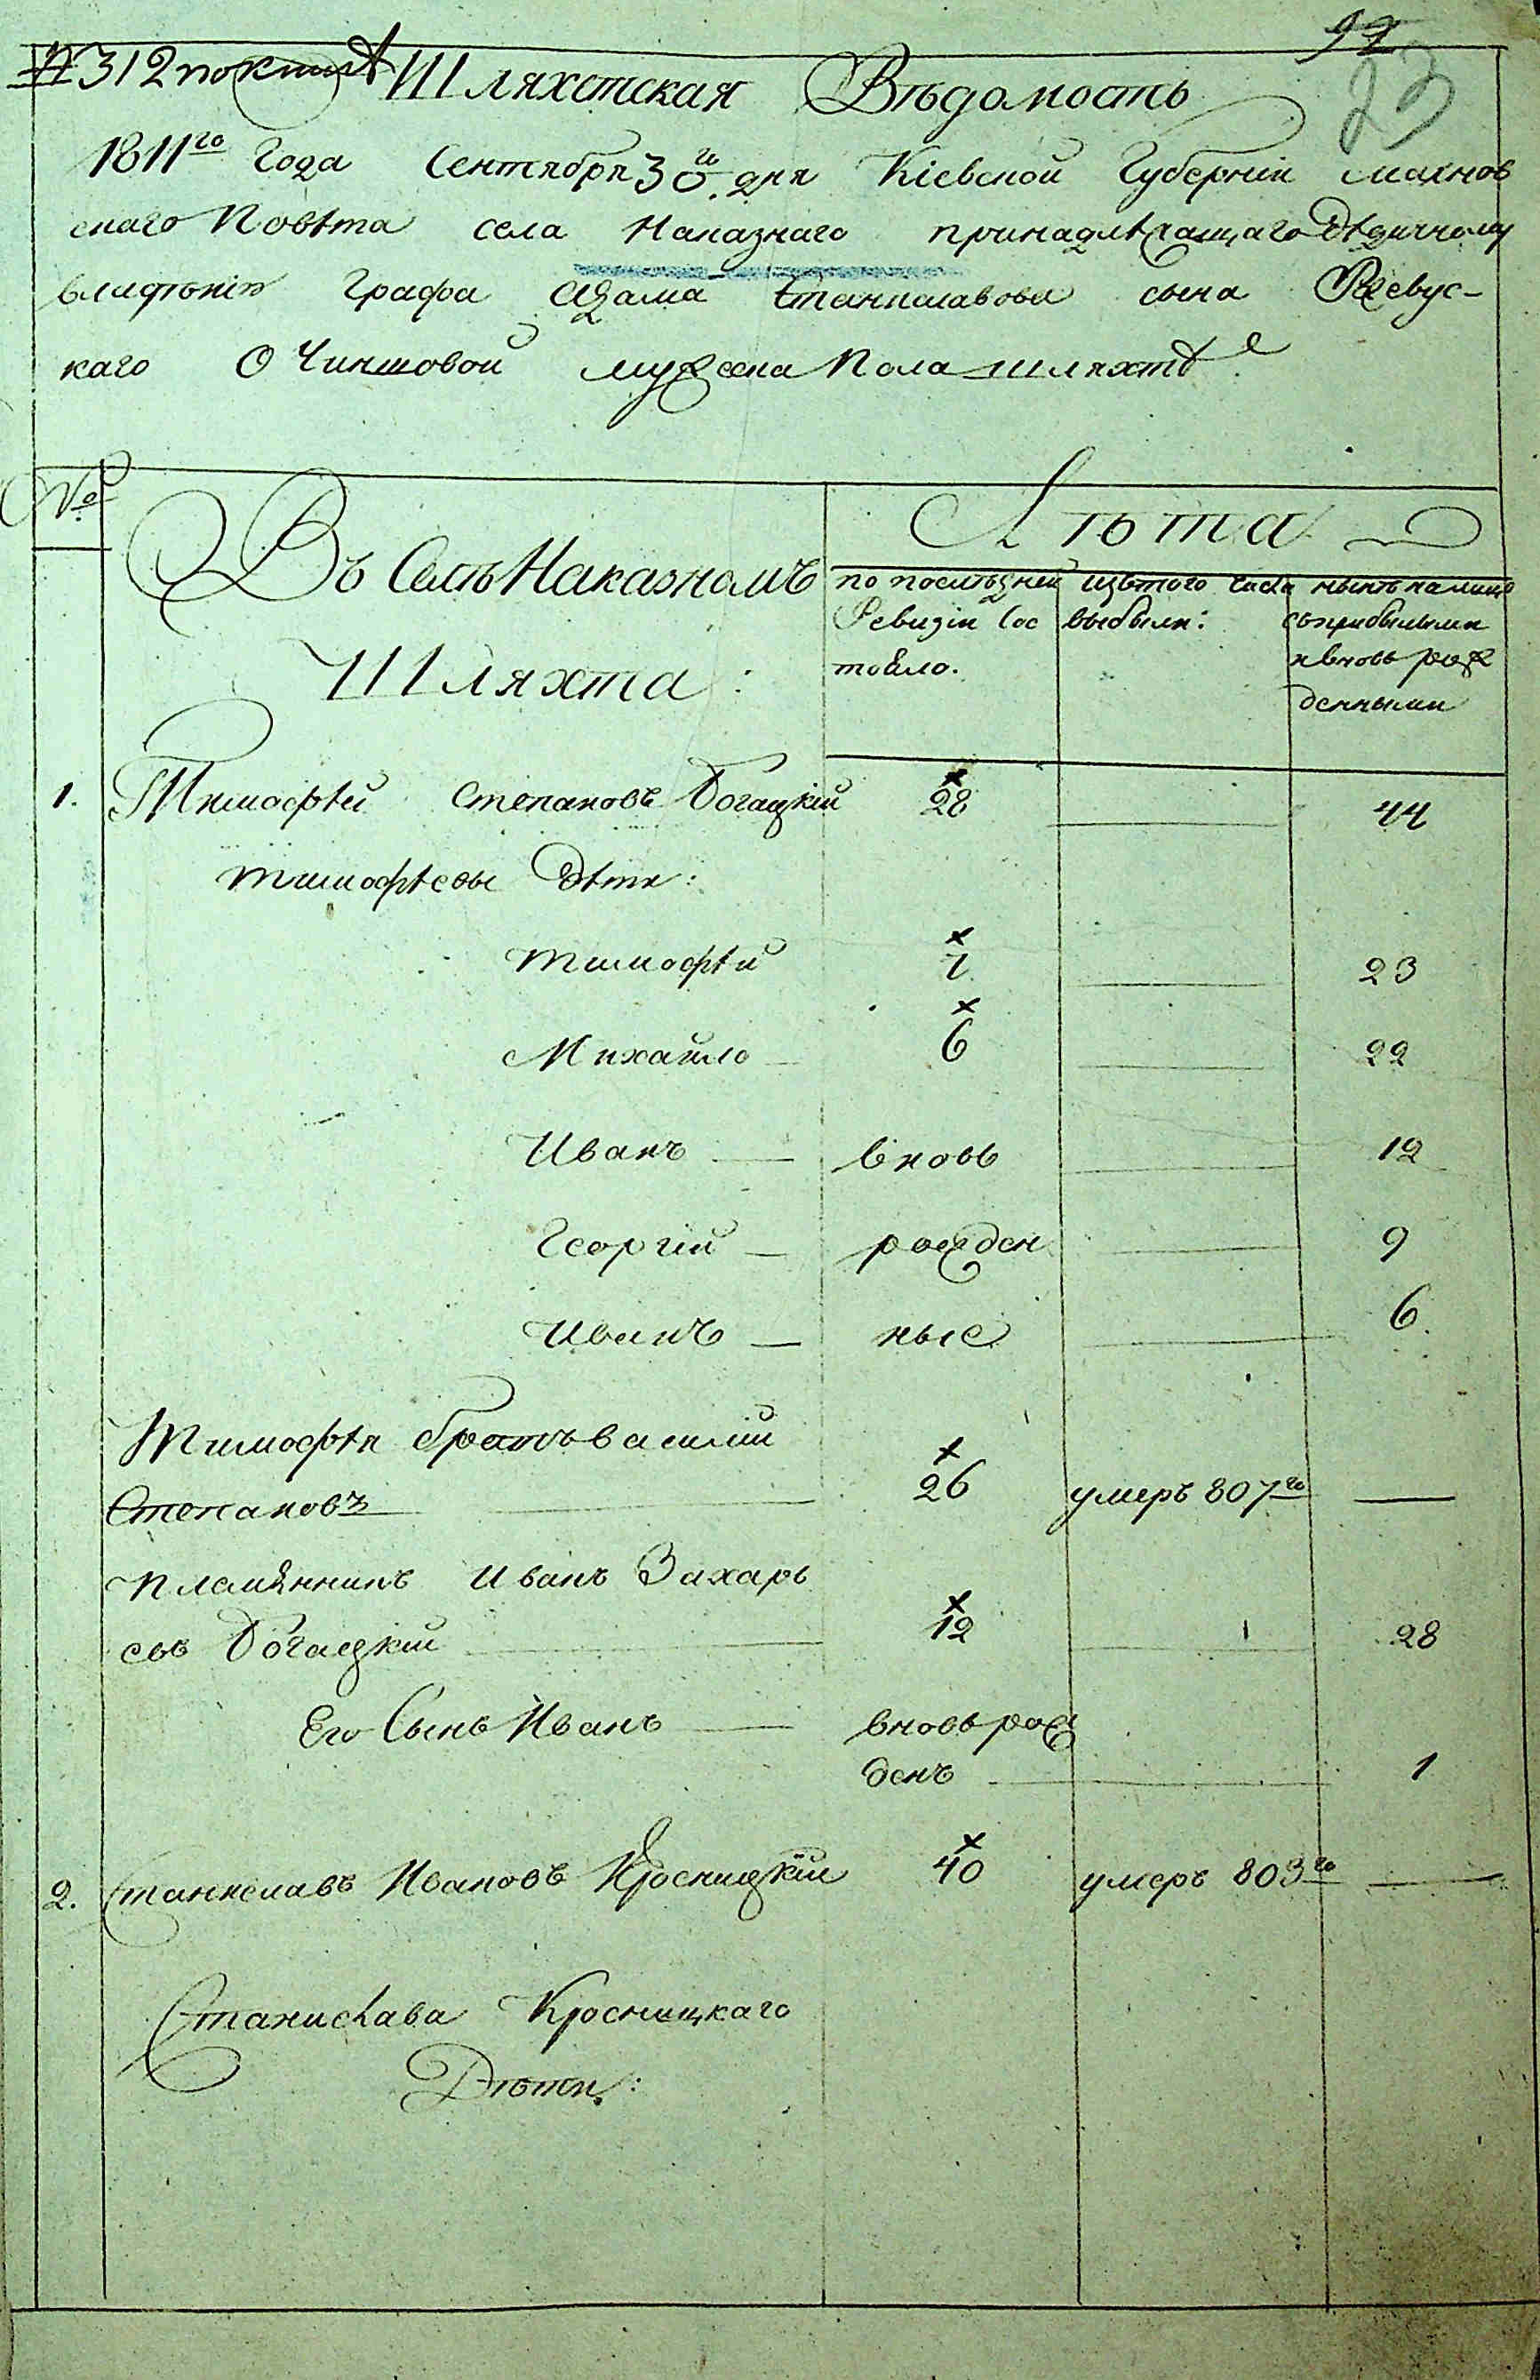 23
№ 312 по книгѣ Шляхетская Вѣдомость
1811го Года Сентября 30го дня Кіевской Губерніи Махнов
скаго Повѣта села Наказнаго принадлѣжащаго Дѣдичному
владѣнію Графа Адама Станиславова сына Ржевус-
каго О Чиншовой мужеска Пола шляхтѣ
№
Лѣта
Въ Селѣ Наказномъ
Шляхта:
по послѣдней Ревизіи Сос тояло.
изътого числа выбыли:
нынѣ налицо съприбылыми и вновь рож денными
1. Тимофѣй Степановъ Богацкій 28 44
Тимофѣевы Дѣти:
Тимофѣй 7 23
Михайло 6 22
Иванъ вновь 12
Георгій рожден 9
Иванъ ные 6
Тимофѣя братъ Василій
Степановъ 26 умеръ 807го
Племянникъ Иванъ Захарь
евъ Богацкій 12 28
Его Сынъ Иванъ вновь рож
денъ 1
2. Станиславъ Ивановъ Кросницкій 40 умеръ 803го
Станислава Кросницкаго
Дѣти: